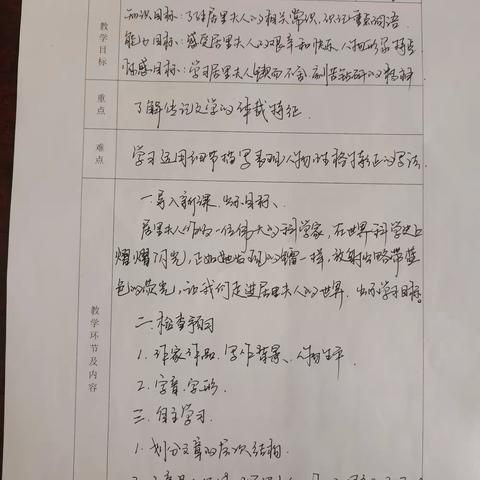 教学目标
知识目标：了解居里夫人的相关常识，识记重点词语
能力目标：感受居里夫人的艰辛和快乐，人物形象特点
情感目标：学习居里夫人锲而不舍、刻苦钻研的精神
重点
了解传记文学的体裁特征．
难点
学习运用细节描写表现人物性格特征的写法．
教学环节及内容
一、导入新课，出示目标、
居里夫人作为一位伟大的科学家，在世界科学史上
熠熠闪光，正如她发现的镭一样，放射出略带蓝
色的荧光，让我们走进居里夫人的世界．出示学习目标
二、检查预习
1．作家作品．写作背景、人物生平
2．字音、字形．
三．自主学习．
1．划分文章的层次结构．